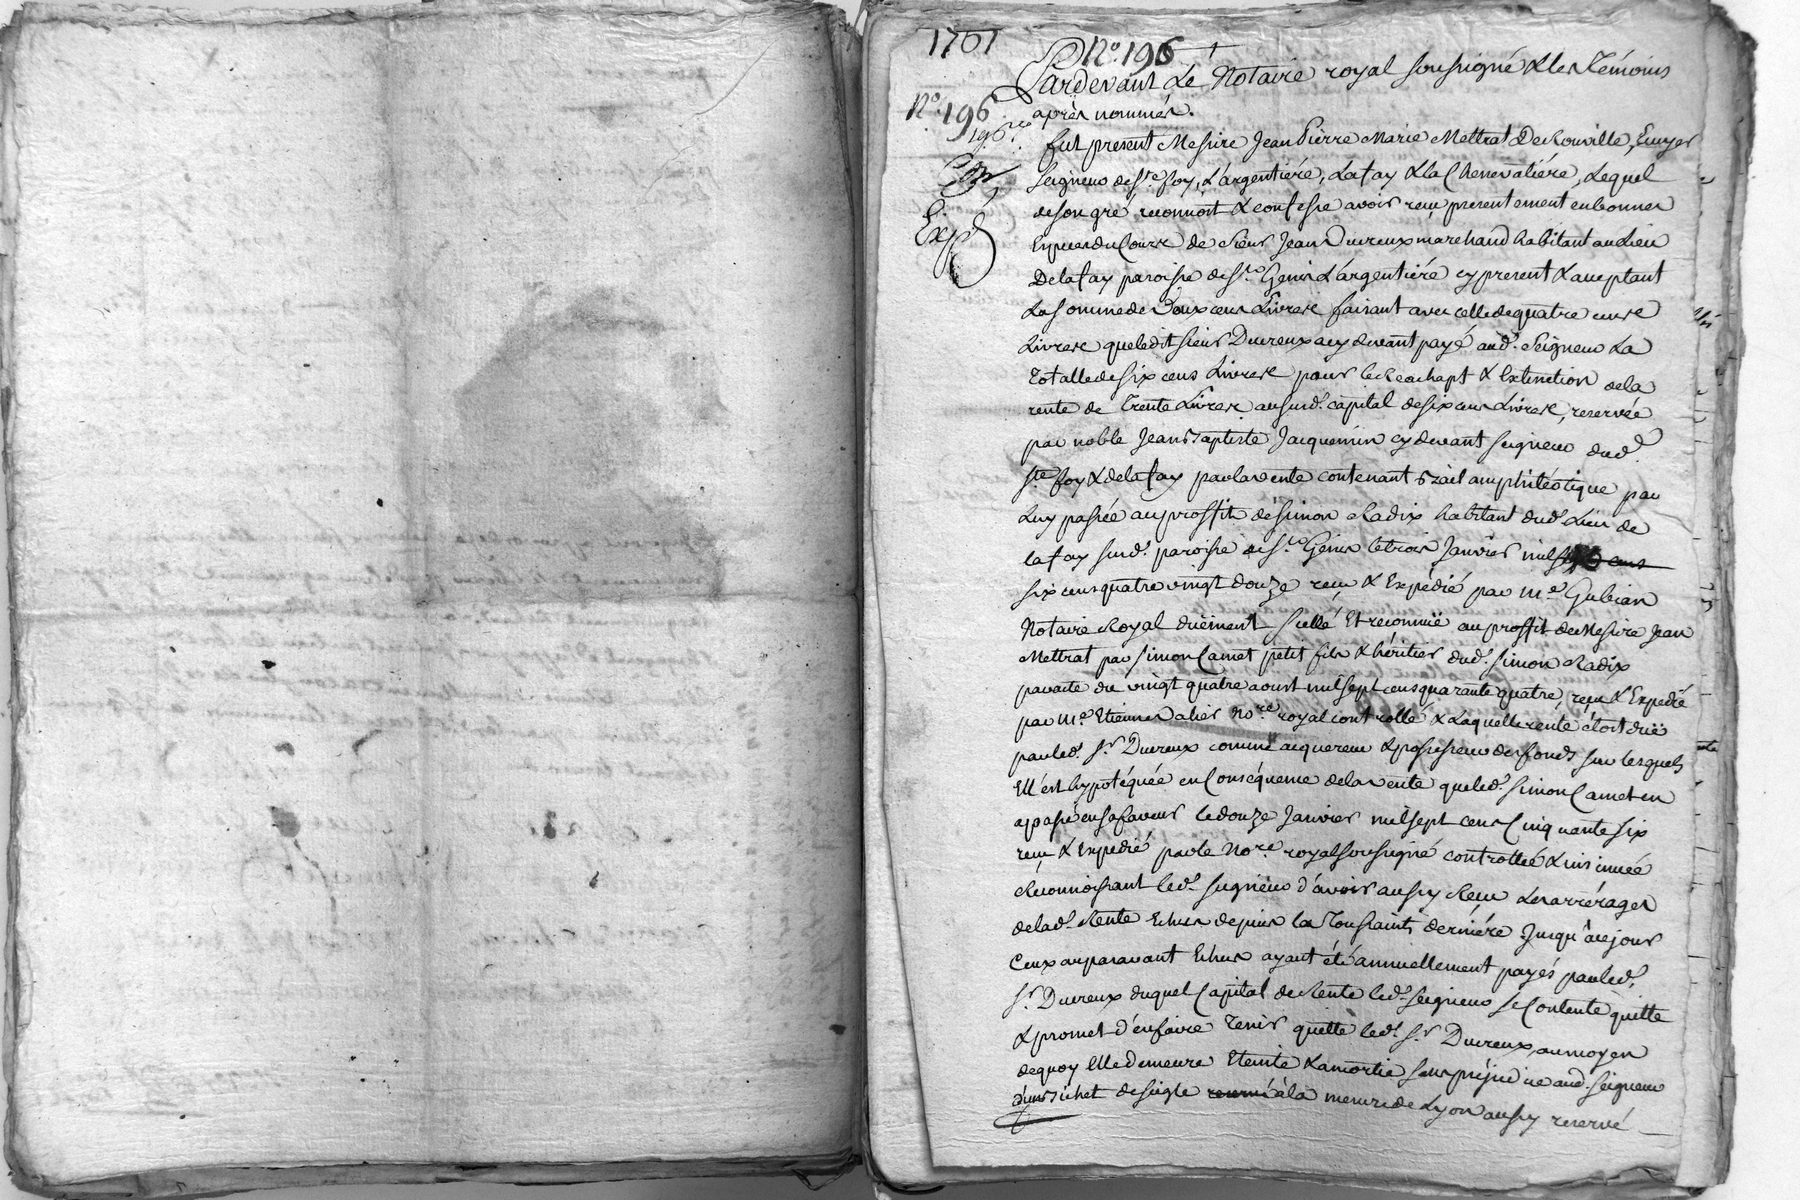 1761
N.o 196
N.o 196
196.me
Exp.
Pardevant Le Notaire royal soussigné & les Témoins
après nommés.
fut present Messire Jean Pierre Marie Mettrat De Rouville, Ecuyer
Seigneur de S.te foy, L'argentiére, Lafay & la Chenevatiére, Lequel
de son gré reconnoit & confesse avoir reçu presentement en bonnes
Especes du Cours de Sieur Jean Ducreux marchand habitant au Lieu
De Lafay paroisse de S.t Genis L'argentiére cy present & acceptant
La somme de Deux cens Livres faisant avec celle de quatre cens
Livres que ledit sieur Ducreux a cy devant payé aud. Seigneur La
Totalle de six cens Livres pour le Reachapt & Extinction de la
rente de trente Livres au surd. capital de six cens Livres, reservée
par noble Jean Baptiste Jacquemin cy devant seigneur dud.
S.te foy & de Lafay par la vente contenant bail amphitéotique par
Luy passée au proffit de Simon Radix habitant dud. Lieu de
Lafay susd. paroisse de S.t Genis le trois Janvier mil cens
six cens quatre vingt douze reçu & Expédié par M.e Gubian
Notaire Royal duëment scellé Et reconnuë au proffit de Messire Jean
Mettrat par Simon Camet petit fils & héritier dud. Simon Radix
par acte du vingt quatre aoust mil sept cens quarante quatre, reçu & Expedié
par M.e Etienne alier No.re royal controllé & Laquelle rente étoit duë
par led. S.r Ducreux comme acquereur & possesseur des fonds sur lesquels
Ell'est hypotéquée en Conséquence de la vente que led. Simon Camet en
a passé en sa faveur le douze Janvier mil sept cens Cinquante six
reçu & Expedié par le No.re royal soussigné controllée & insinuée
Reconnoissant led. seigneur d'avoir aussy Reçu Les arrérages
de lad. Rente Echus depuis la Toussaints derniére Jusqu'à ce jour
Ceux auparavant Echus ayant été annuellement payés par led.
S.r Ducreux duquel Capital de Rente led. seigneur se Contente quitte
& promet d'en faire Tenir quitte led. S.r Ducreux, au moyen
de quoy Elle demeure Eteinte & amortie sans préjudice aud. seigneur
d'un bichet de seigle à la mesure de Lyon aussy reservé